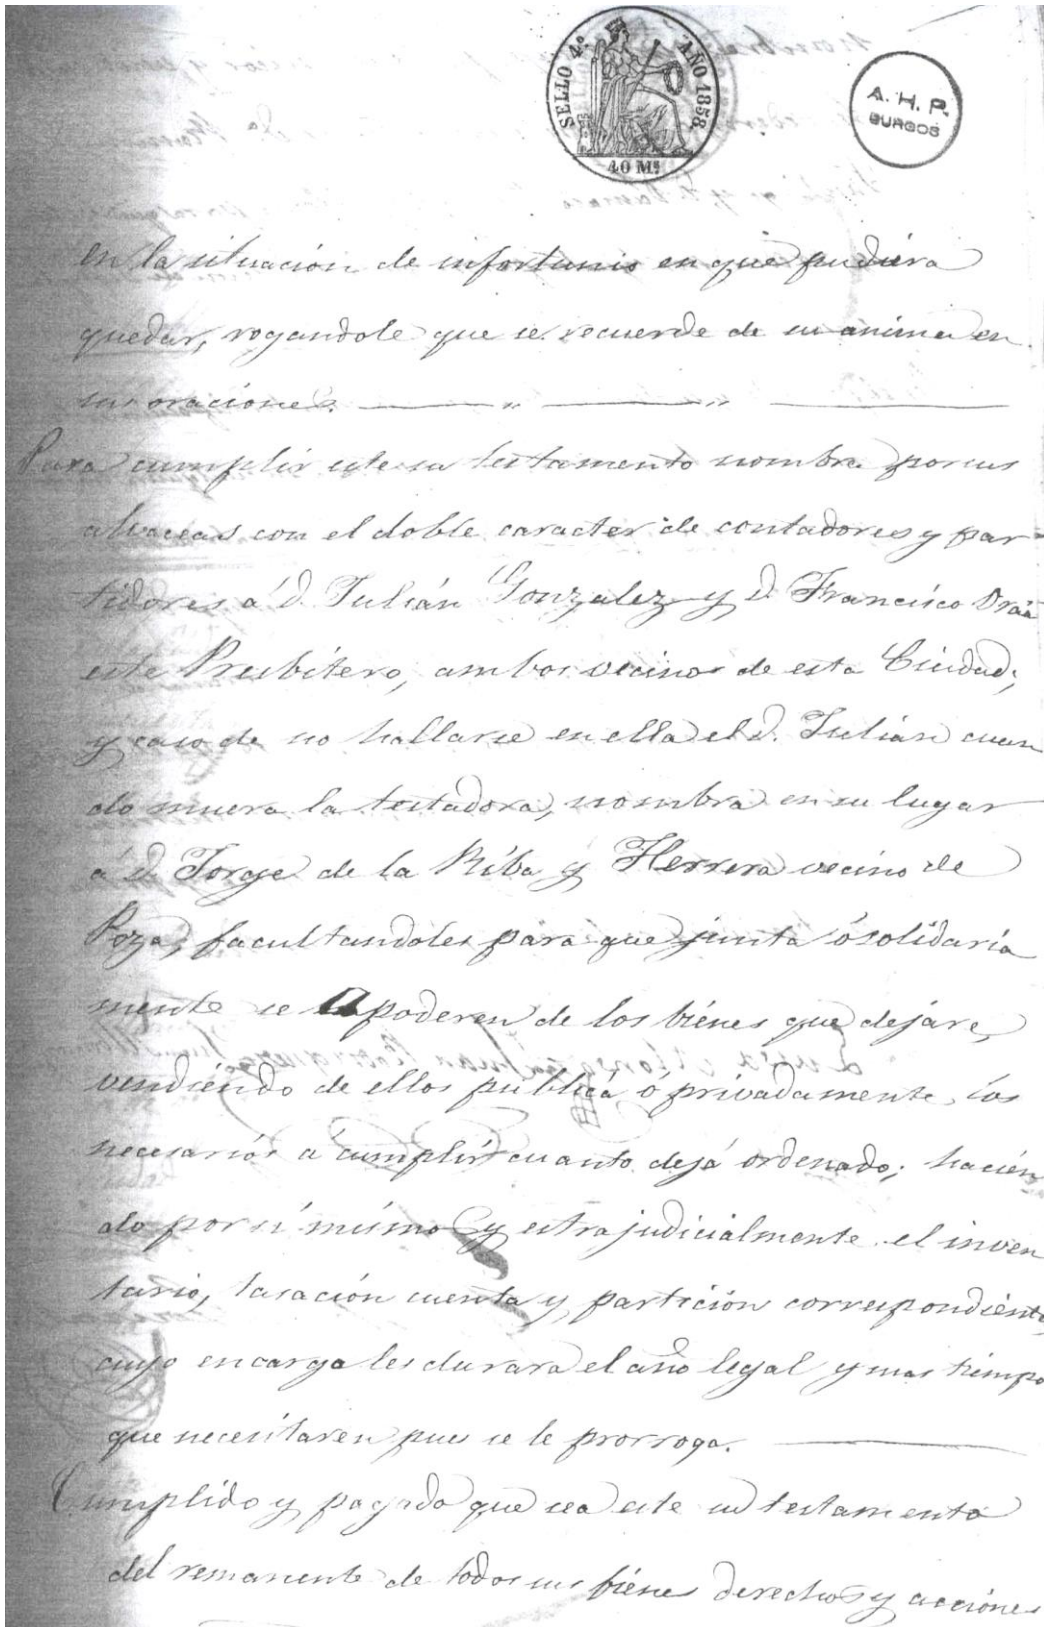 SELLO 4º AÑO 1858.
40 Ms
A. H. P.
BURGOS
en la situación de infortunio en que pudiera
quedar, rogandole que se recuerde de su anima en
sus oraciones.
Para cumplir este su testamento nombra por sus
alvaceas con el doble caracter de contadores y par-
tidores á D. Julián Gonzalez y D. Francisco Oráa
este Presbítero, ambos vecinos de esta Ciudad;
y caso de no hallarse en ella el D. Julián cuan
do muera la testadora, nombra en su lugar
á D. Jorge de la Riba y Herrera vecino de
Poza, facultandoles para que junta ó solidaria
mente se apoderen de los biénes que dejáre,
vendiendo de ellos publica o privadamente los
necesarios á cumplir cuanto dejá ordenado; hacién
dolo por sí mismo y estrajudicialmente el inven
tario, tasación cuenta y partición correspondiente,
cuyo encargo les durara el año legal y mas tiempo
que necesitaren pues se le prorroga.
Cumplido y pagado que sea este su testamento
del remanente de todos sus biénes derechos y acciónes